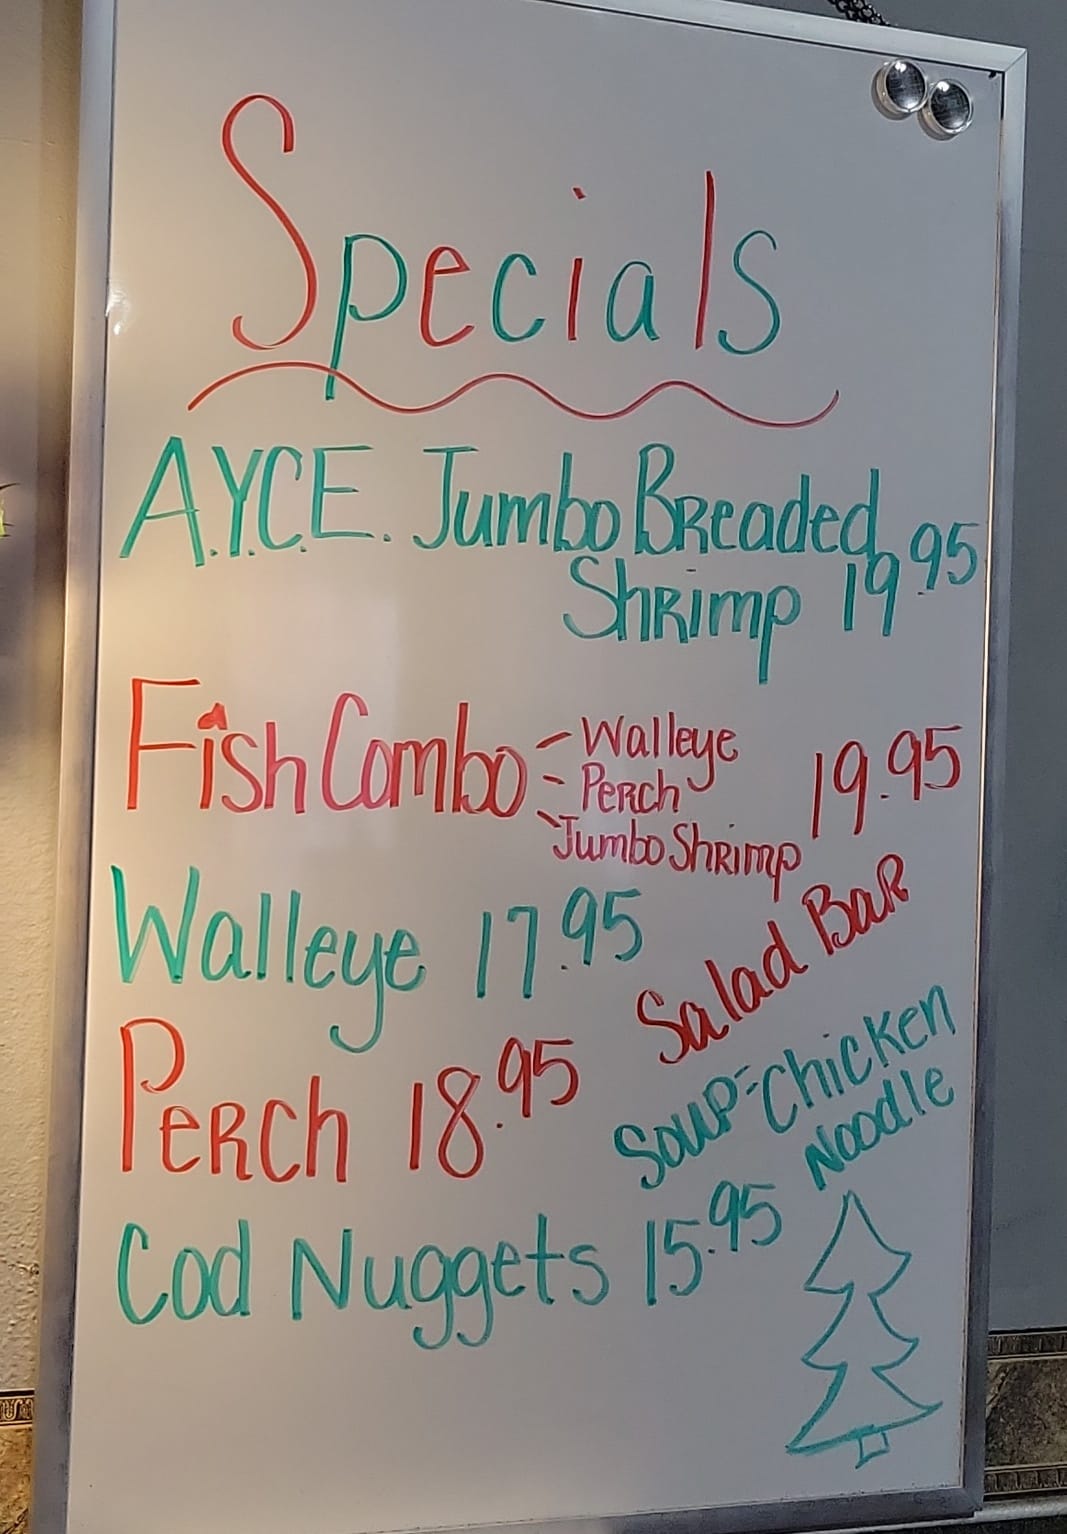 Specials
A.Y.C.E. Jumbo Breaded
Shrimp 19.95
Fish Combo - Walleye
- Perch 19.95
- Jumbo Shrimp
Walleye 17.95
Salad Bar
Perch 18.95
Soup-Chicken
Noodle
Cod Nuggets 15.95